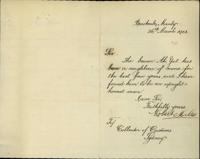 26th March 1903
Sir
The bearer Ah Yot has
been a neighbour of mine for
the last few years and I have
found him to be an upright
honest man
I am Sir
Faithfully yours
To
Collector of Customs
Sydney